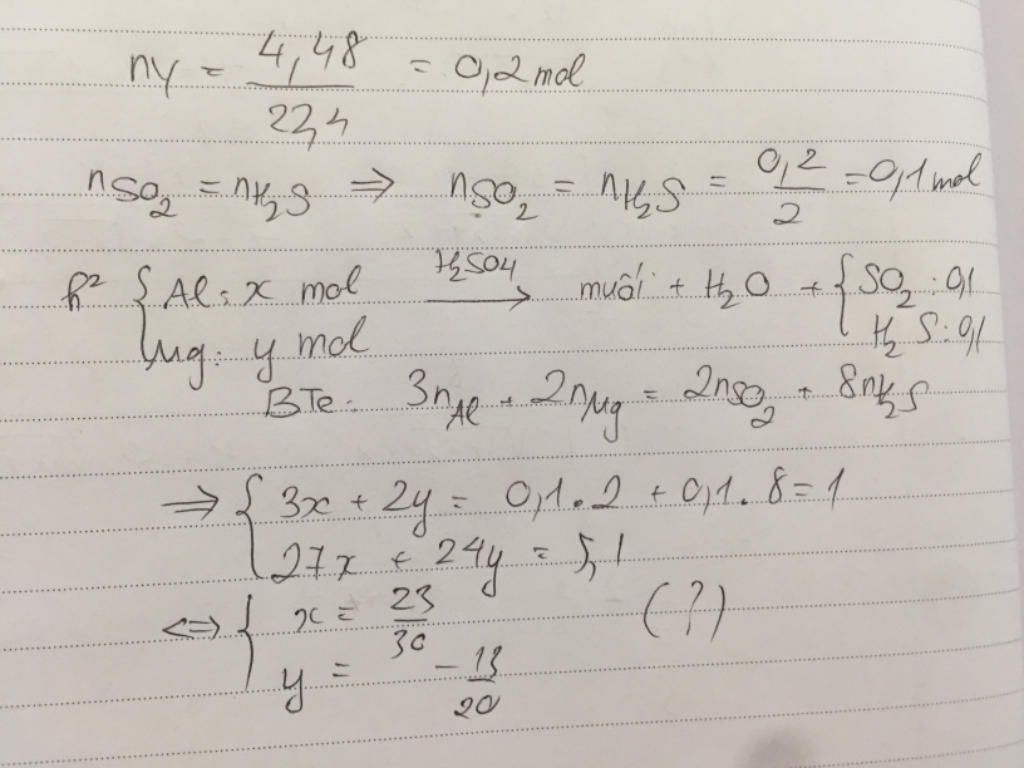 nY = 4,48 / 22,4 = 0,2 mol
nSO₂ = nH₂S ⇒ nSO₂ = nH₂S = 0,2 / 2 = 0,1 mol
h² { Al: x mol —H₂SO4→ muối + H₂O + { SO₂: 0,1
Mg: y mol H₂S: 0,1
BTe: 3nAl + 2nMg = 2nSO₂ + 8nH₂S
⇒ { 3x + 2y = 0,1.2 + 0,1.8 = 1
27x + 24y = 5,1
⇔ { x = 23/30 (?)
y = -13/20